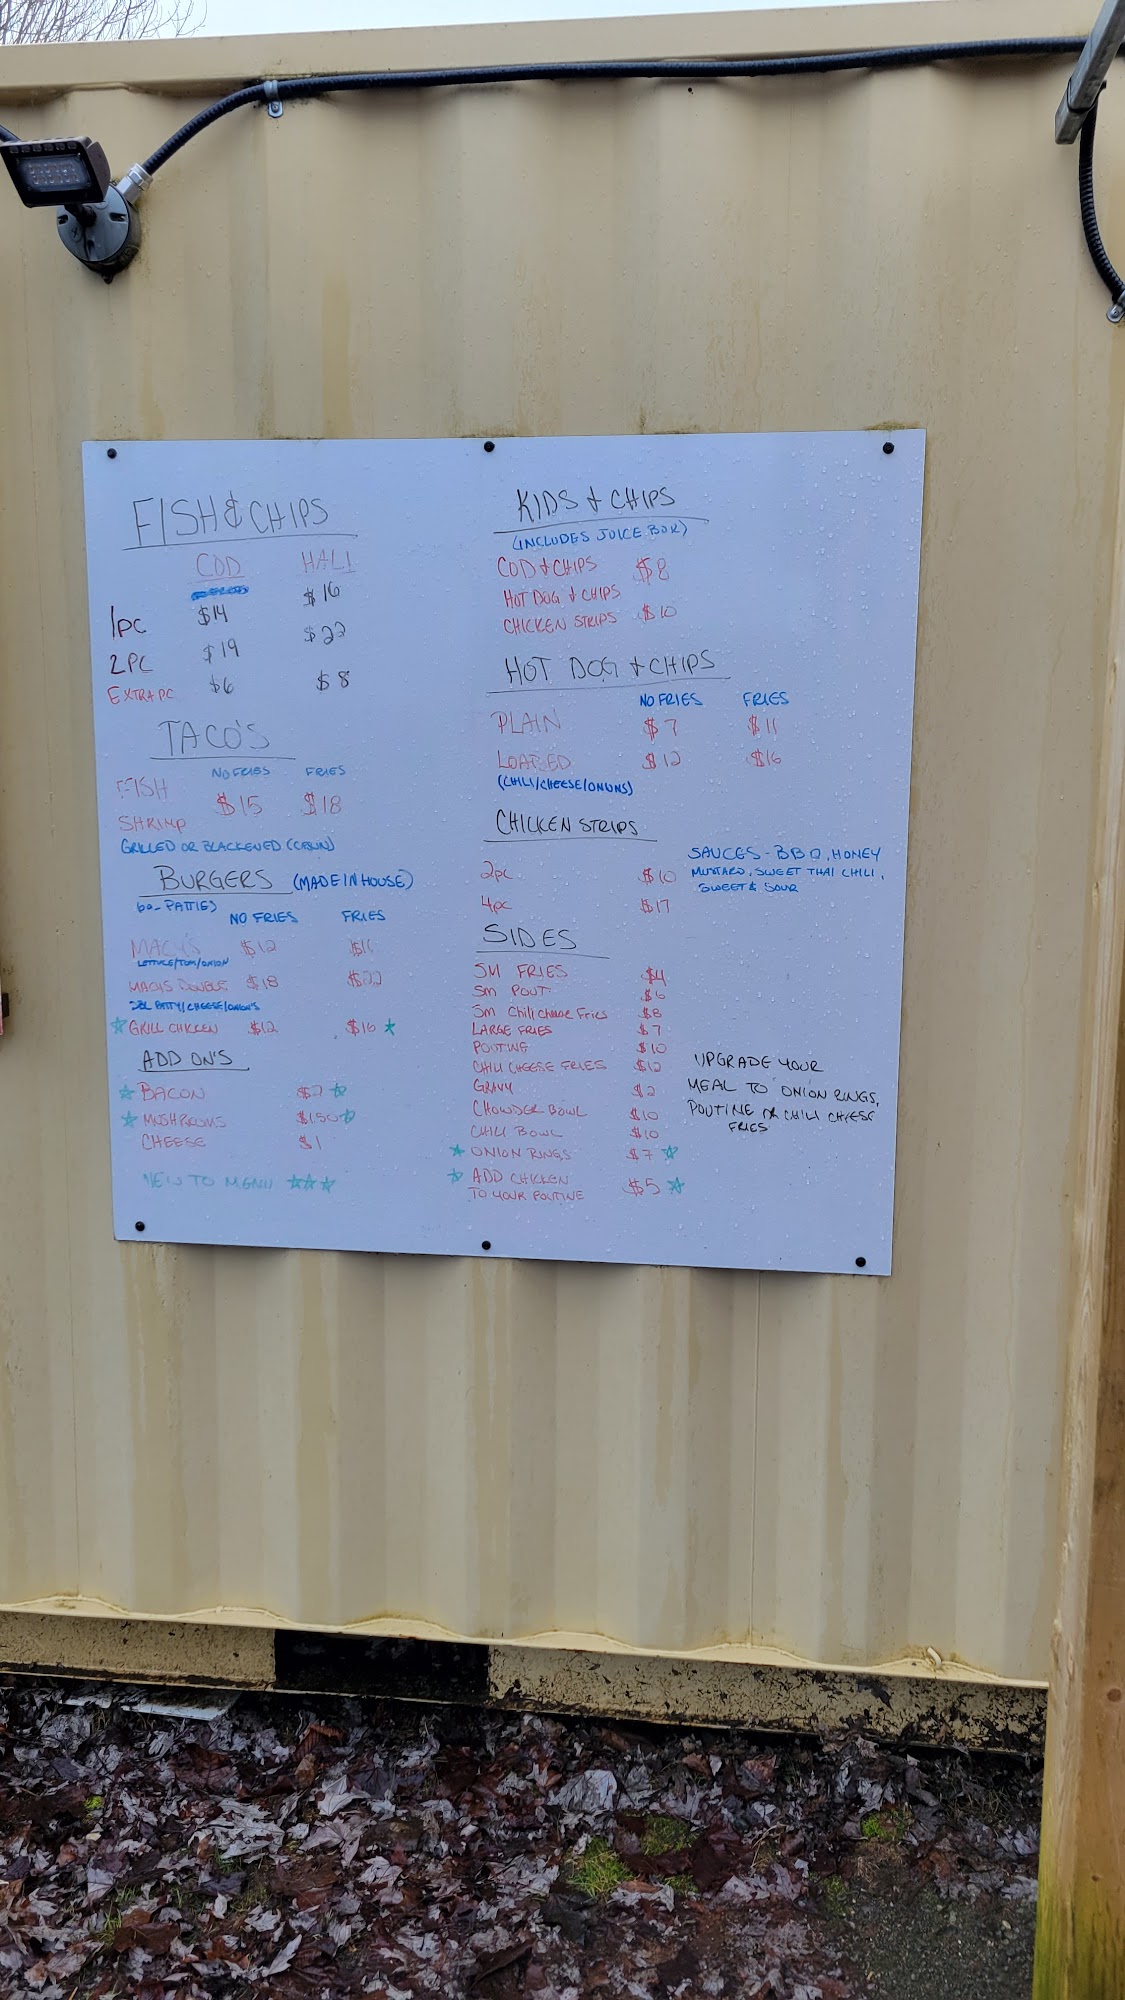 FISH & CHIPS
COD HALI
1PC $14 $16
2PC $19 $22
EXTRA PC $6 $8
TACO'S
NO FRIES FRIES
FISH $15 $18
SHRIMP
GRILLED OR BLACKENED (CAJUN)
BURGERS (MADE IN HOUSE)
6oz PATTIES
NO FRIES FRIES
MACY'S $12 $16
LETTUCE/TOM/ONION
MACYS DOUBLE $18 $22
DBL PATTY/CHEESE/ONION'S
GRILL CHICKEN $12 $16
ADD ON'S
BACON $2
MUSHROOMS $1.50
CHEESE $1
NEW TO MENU
KIDS & CHIPS
(INCLUDES JUICE BOX)
COD & CHIPS $8
HOT DOG & CHIPS
CHICKEN STRIPS $10
HOT DOG & CHIPS
NO FRIES FRIES
PLAIN $7 $11
LOADED $12 $16
(CHILI/CHEESE/ONIONS)
CHICKEN STRIPS
2pc $10
4pc $17
SAUCES - BBQ, HONEY
MUSTARD, SWEET THAI CHILI,
SWEET & SOUR
SIDES
SM FRIES $4
Sm POUT $6
Sm Chili Cheese Fries $8
LARGE FRIES $7
POUTINE $10
CHILI CHEESE FRIES $12
GRAVY $2
CHOWDER BOWL $10
CHILI BOWL $10
ONION RINGS $7
ADD CHICKEN
TO YOUR POUTINE $5
UPGRADE YOUR
MEAL TO ONION RINGS,
POUTINE OR CHILI CHEESE
FRIES